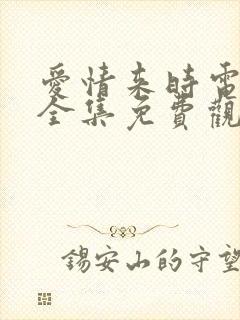 愛情來時電
全集免費觀
錫安山的守望